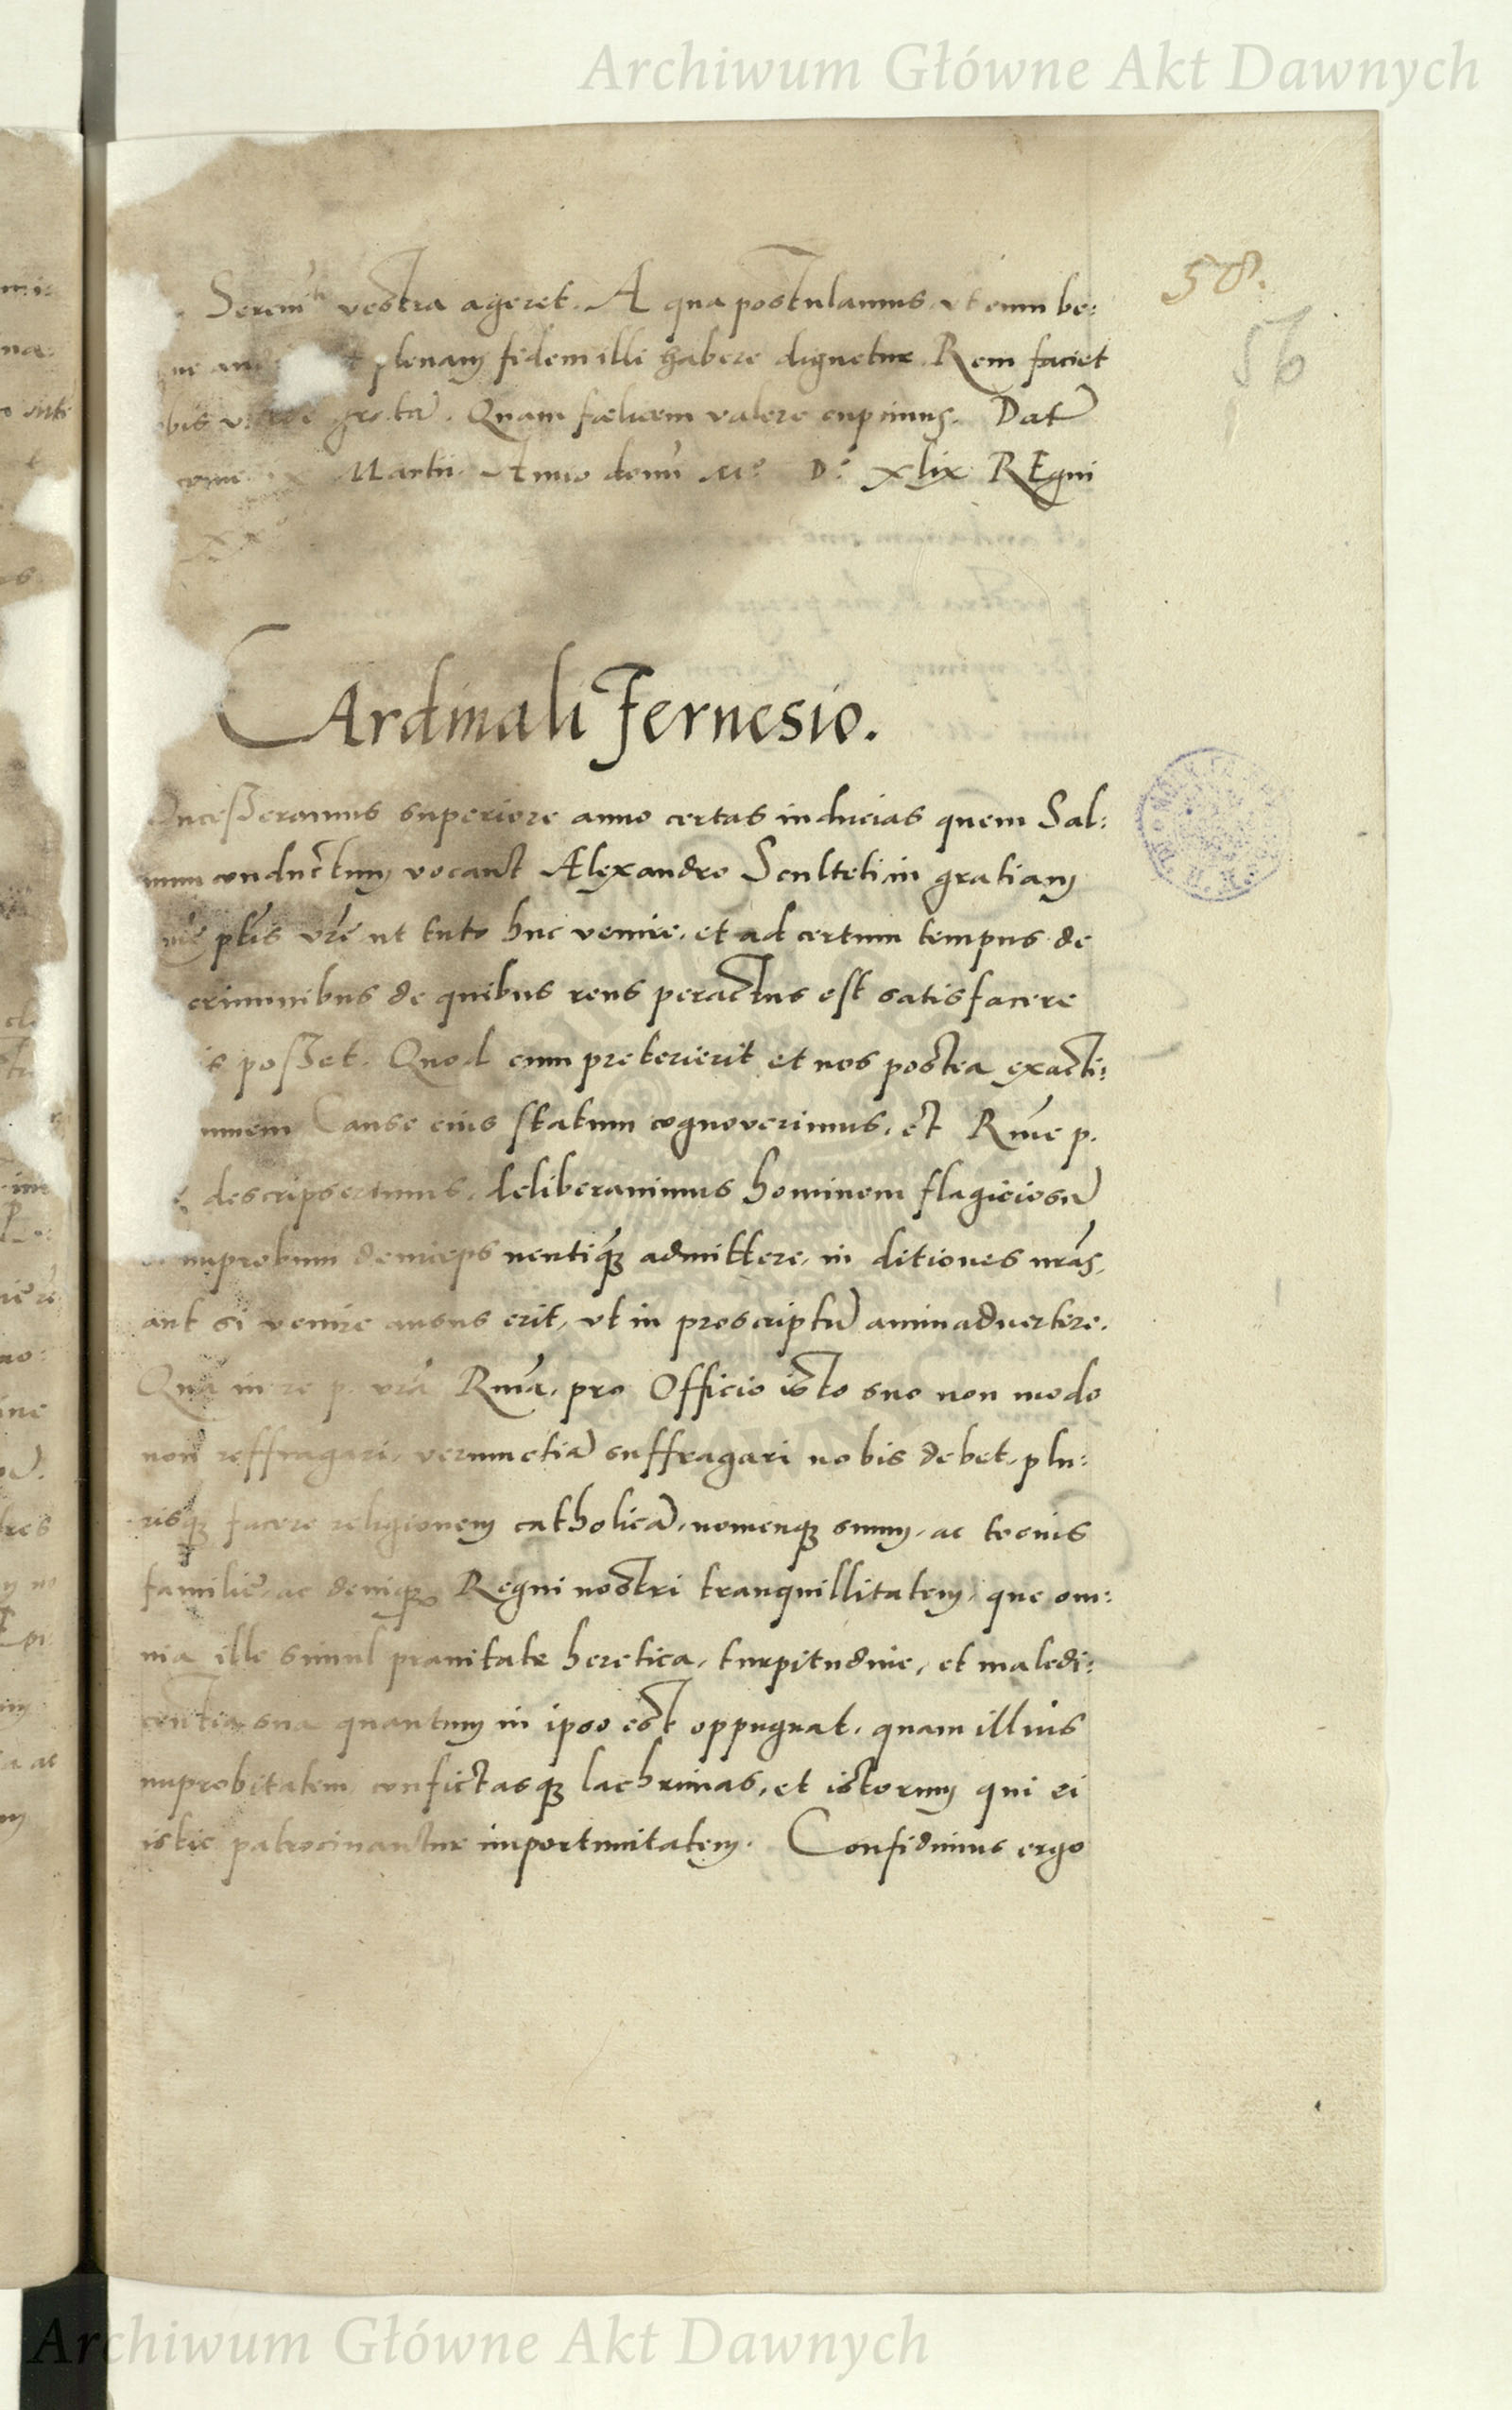 Archiwum Główne Akt Dawnych
58.
56
Sereni^tas vestra ageret. A qua postulamus, ut eum be:
plenam fidem illi habere dignetur. Rem faciet
Quam fælicem valere cupimus. Dat
Martii. Anno domi M° D° xlix REgni
CArdinali Fernesio.
Oncesseramus superiore anno certas inducias quem Sal:
uum conductum vocant Alexandro Sculteti in gratiam
ptis vre ut tuto huc venire, et ad certum tempus de
criminibus de quibus reus peractus est satisfacere
posset. Quod cum preterierit et nos postea exacti:
Cause eius statum cognoverimus, et Rme p.
descripserimus, deliberavimus hominem flagiciosu
improbum deinceps neutiq admittere, in ditiones nras,
aut si venire ausus erit, ut in proscriptu animadvertere.
Qua in re p. vra Rma, pro Officio isto suo non modo
non reffragari, verum etia suffragari nobis debet, plu:
risq facere religionem catholica, nomenq suum, ac tocius
familie, ac deniq Regni nostri tranquillitatem, que om:
nia ille simul pravitate heretica, turpitudine, et maledi:
centia sua quantum in ipso est oppugnat, quam illius
improbitatem confictasq lachrimas, et istorum qui ei
istic patrocinantur importunitatem. Confidimus ergo
Archiwum Główne Akt Dawnych